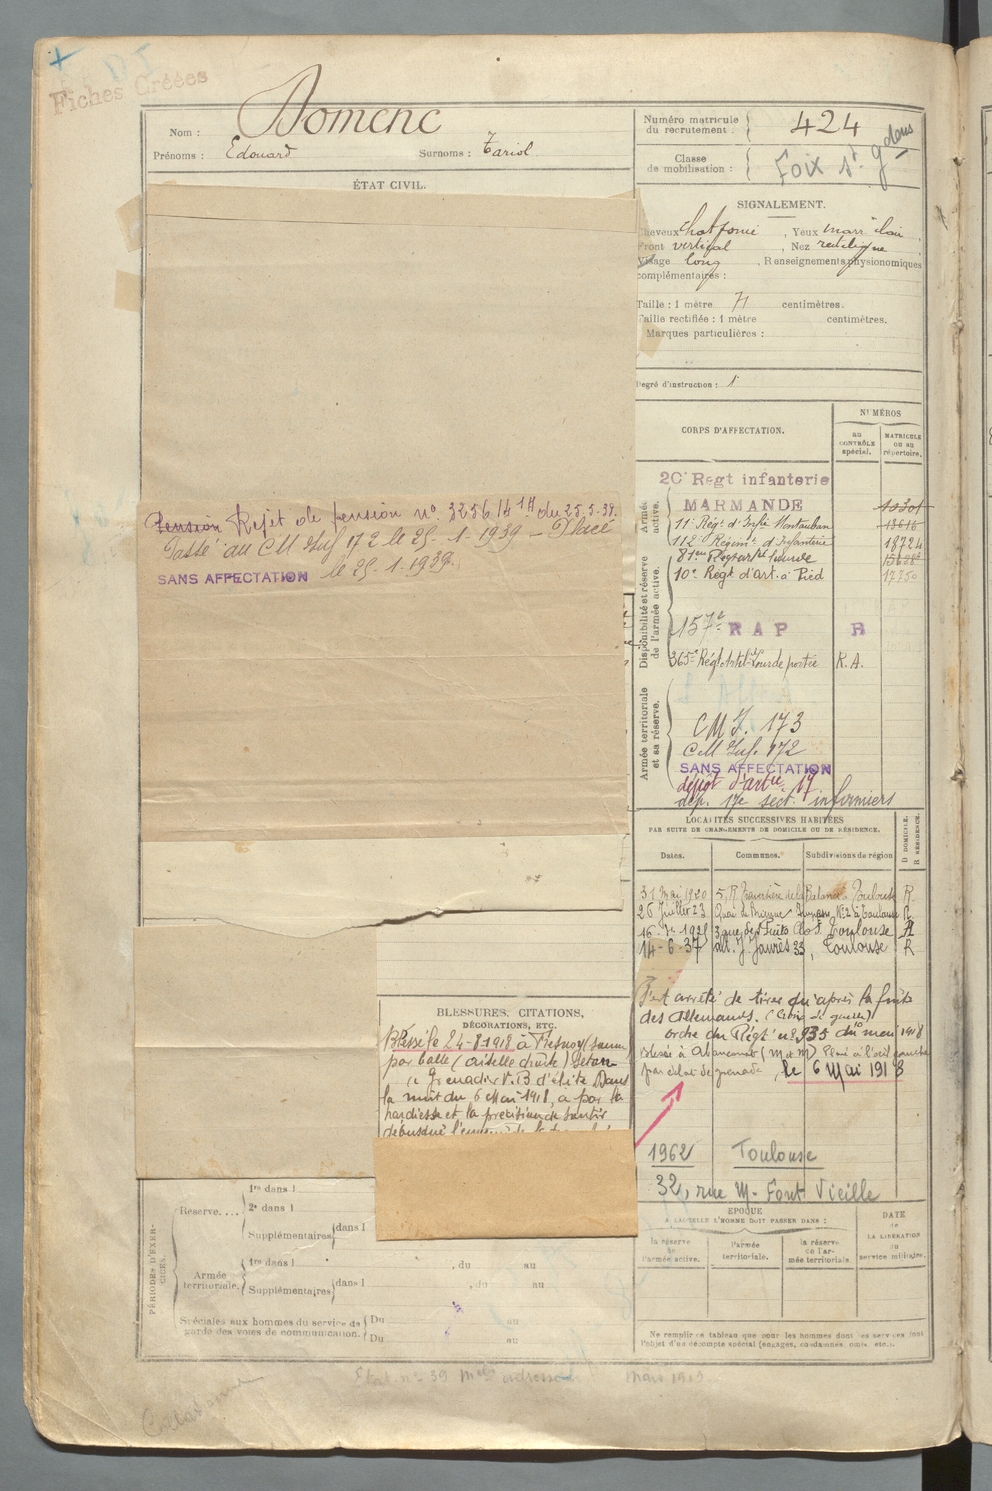 Fiches Créées
Nom : Domenc
Prénoms : Edouard Surnoms : Tariol
Numéro matricule du recrutement : 424
Classe de mobilisation : Foix St Gdens
ÉTAT CIVIL.
SIGNALEMENT.
Cheveux chat foncé, Yeux marr clair
Front vertical, Nez rectiligne
Visage long, Renseignements physionomiques
complémentaires :
Taille : 1 mètre 71 centimètres.
Taille rectifiée : 1 mètre centimètres.
Marques particulières :
Degré d'instruction : 1
CORPS D'AFFECTATION.
NUMÉROS
au CONTRÔLE spécial.
MATRICULE OU AU répertoire.
Armée active.
20 Regt infanterie
MARMANDE
11e Régt d'Infie Montauban
112e Régimt d'Infanterie 18724
10e Régt d'art. à Pied 17750
Disponibilité et réserve de l'armée active.
157e R A P R
365e Régt Artil. Lourde portée R.A.
Armée territoriale et sa réserve.
CMI. 173
CM Inf. 172
SANS AFFECTATION
dépôt d'artie 17
dép. 17e sect. infirmiers
Pension Rejet de pension no. 325614 du 25.5.39.
Passé au CM Inf 172 le 25-1-1939 - Placé
SANS AFFECTATION le 25-1-1939.
LOCALITÉS SUCCESSIVES HABITÉES
PAR SUITE DE CHANGEMENTS DE DOMICILE OU DE RÉSIDENCE.
Dates. Communes. Subdivisions de région D DOMICILE. R RÉSIDENCE.
31 Mai 1920 5, R. Traversière de la Balance Toulouse R
26 Juillet 23 Quai de Brienne Impasse, No 2 à Toulouse R
Puits Clos Toulouse R
14-6-37 all. J. Jaurès 33, Toulouse R
BLESSURES, CITATIONS,
DÉCORATIONS, ETC.
Blessé le 24-8-1918 à Fresnoy (Somme
par balle (aisselle droite)
Grenadier V.B d'élite Dans
la nuit du 6 Mai 1918, a par la
hardiesse et la précision de son tir
débusqué
s'est arrêté de tirer qu'après la fuite
des Allemands. (Croix de guerre)
ordre du Régt no 935 du mai 1918
Blessé à Avancourt (M et M) Plaie à l'œil gauche
par éclat de grenade, le 6 Mai 1918
1962 Toulouse
32, rue M. Font Vieille
PÉRIODES D'EXERCICES.
Réserve....
1re dans l
2e dans l
Supplémentaires dans l
Armée territoriale.
1re dans l , du au
Supplémentaires dans l , du au
Spéciales aux hommes du service de garde des voies de communication.
Du au
Du au
ÉPOQUE
A LAQUELLE L'HOMME DOIT PASSER DANS :
la réserve de l'armée active.
l'armée territoriale.
la réserve de l'armée territoriale.
DATE de LA LIBÉRATION du service militaire.
Ne remplir ce tableau que pour les hommes dont les services font
l'objet d'un décompte spécial (engagés, condamnés, omis, etc.).